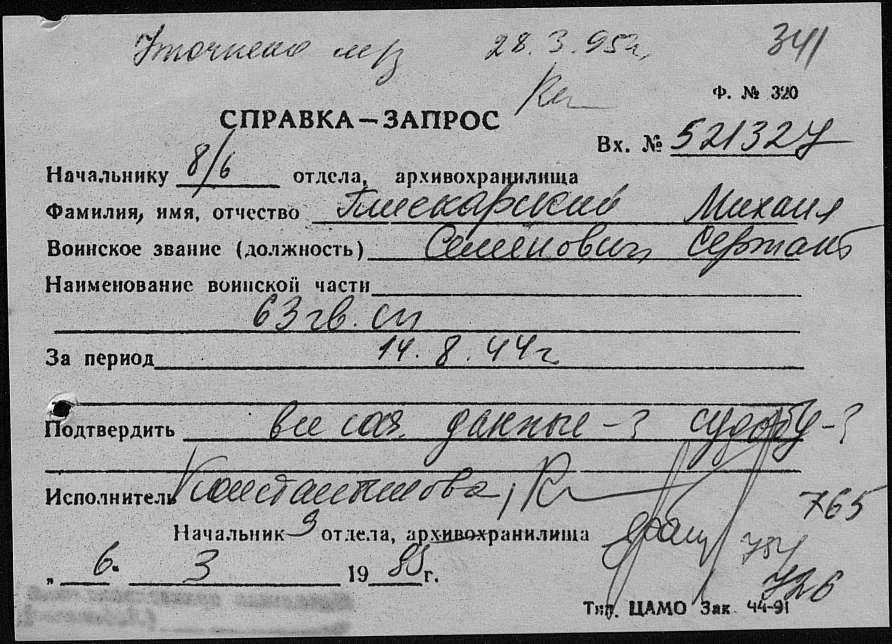 Уточнено 28.3.95г. 341
Ф. № 320
СПРАВКА—ЗАПРОС
Вх. № 521327
Начальнику 8/6 отдела, архивохранилища
Фамилия, имя, отчество Михаил
Воинское звание (должность) Семёнович сержант
Наименование воинской части
63 гв. сп
За период 14.8.44г
Подтвердить все соц. данные-? судьбу-?
Исполнитель Константинова,
765
Начальник 9 отдела, архивохранилища
„ 6. 3 19 95 г. 726
Тип. ЦАМО Зак. 44-91